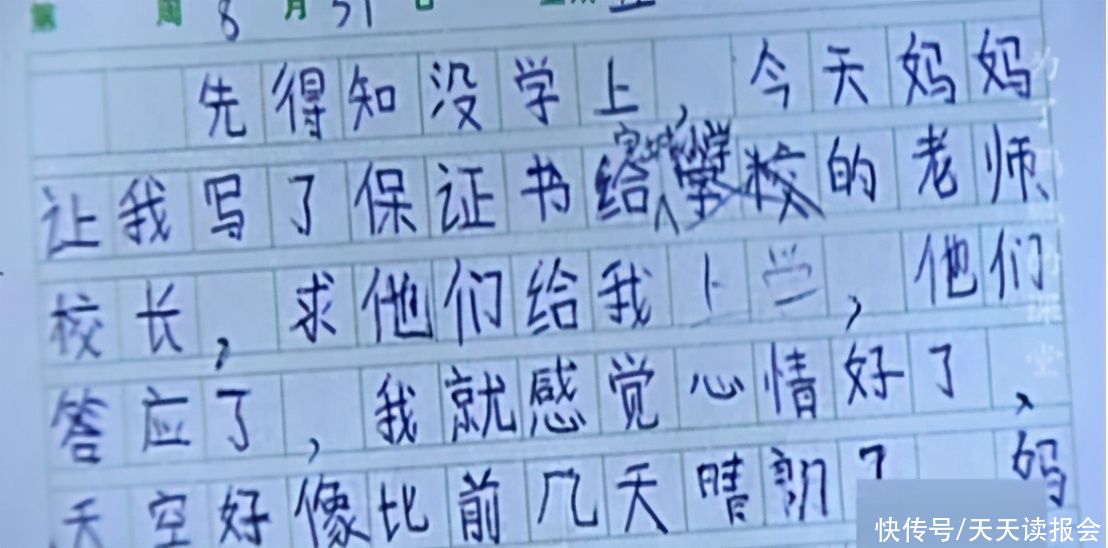 第 周 8 月 31 日
先得知没学上,今天妈妈
让我写了保证书给学校的老师
校长,求他们给我上学,他们
答应了,我就感觉心情好了、
天空好像比前几天晴朗了 妈
快传号/天天读报会